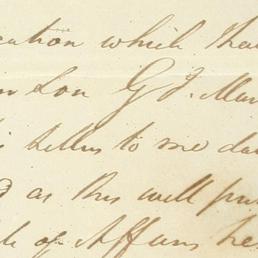 cation which tha
on Lou Gd. Mar
is letter to me da
d as this will pu
le of Affairs he